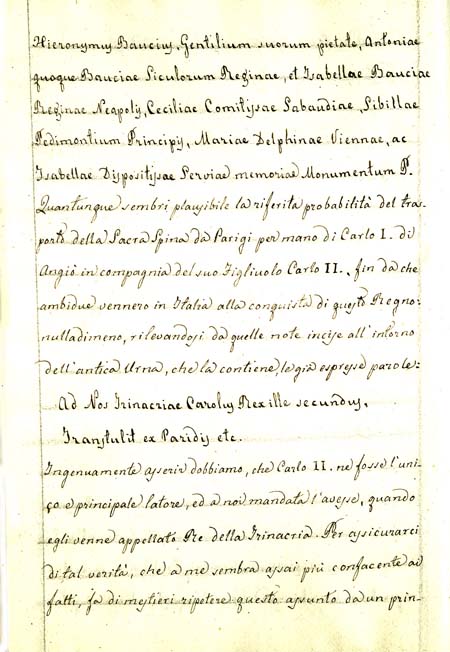 Hieronymus Baucius, Gentilium suorum pietate, Antoniae
quoque Bauciae Siculorum Reginae, et Isabellae Bauciae
Reginae Neapolis, Ceciliae Comitissae Sabaudiae, Sibillae
Pedimontium Principis, Mariae Delphinae Viennae, ac
Isabellae Dispositissae Serviae memoriae Monumentum P.
Quantunque sembri plausibile la riferita probabilità del tras-
porto della Sacra Spina da Parigi per mano di Carlo I. di
Angiò in compagnia del suo Figliuolo Carlo II., fin da che
ambidue vennero in Italia alla conquista di questo Regno:
nulladimeno, rilevandosi da quelle note incise all'intorno
dell'antica Urna, che la contiene, le già espresse parole:
Ad Nos Trinacriae Carolus Rexille secundus,
Transtulit ex Paridis etc.
Ingenuamente asserir dobbiamo, che Carlo II. ne fosse l'uni-
ço e principale latore, ed a noi mandata l'avesse, quando
egli venne appellato Re della Trinacria. Per assicurarci
di tal verità, che a me sembra assai più confacente ai
fatti, fa di mestieri ripetere questo assunto da un prin-